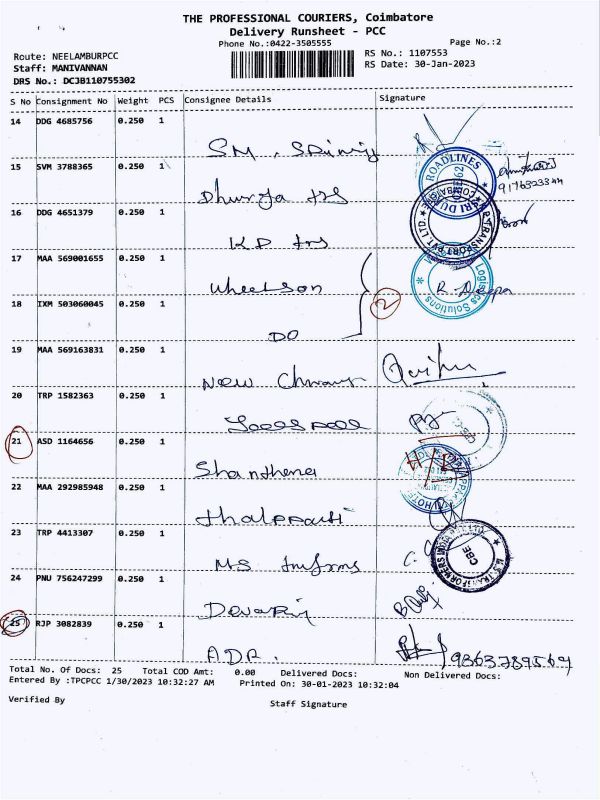 THE PROFESSIONAL COURIERS, Coimbatore
Delivery Runsheet - PCC
Phone No.:0422-3505555
Page No.:2
Route: NEELAMBURPCC
RS No.: 1107553
Staff: MANIVANNAN
RS Date: 30-Jan-2023
DRS No.: DCJB110755302
S No Consignment No Weight PCS Consignee Details Signature
14 DDG 4685756 0.250 1
SM.
15 SVM 3788365 0.250 1
ROADLINES
9176323344
16 DDG 4651379 0.250 1
TRANSPORT PVT. LTD.
KP
17 MAA 569001655 0.250 1
Wheelson
Logistics Solutions
R. Deepa
2
18 IXM 503060045 0.250 1
DO
19 MAA 569163831 0.250 1
New
20 TRP 1582363 0.250 1
21 ASD 1164656 0.250 1
Shanthena
22 MAA 292985948 0.250 1
23 TRP 4413307 0.250 1
MS
TRANSFORMERS INDIA PVT LTD
CBE
24 PNU 756247299 0.250 1
Devaraj
25 RJP 3082839 0.250 1
A.D.R.
9863789569
Total No. Of Docs: 25 Total COD Amt: 0.00 Delivered Docs: Non Delivered Docs:
Entered By :TPCPCC 1/30/2023 10:32:27 AM Printed On: 30-01-2023 10:32:04
Verified By
Staff Signature